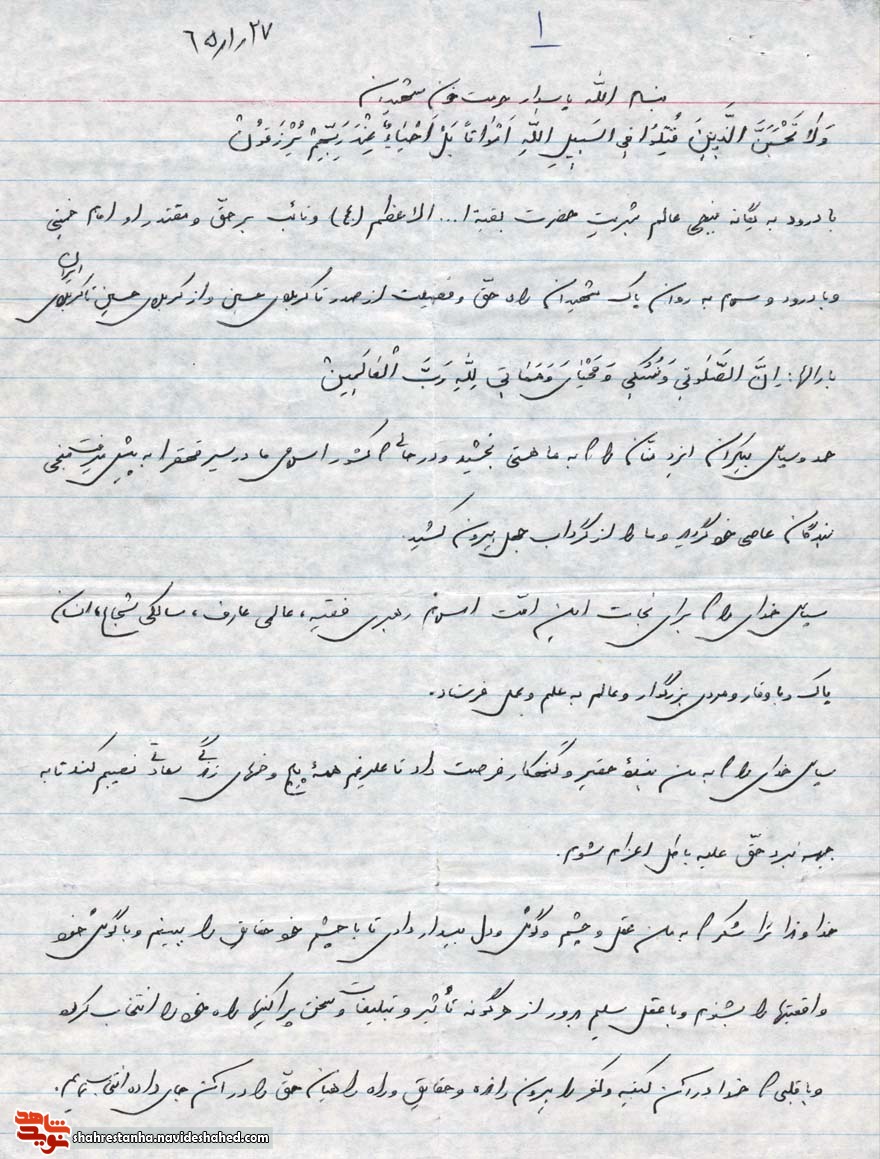 ۱
۶۵/۱/۲۷
بسم الله پاسدار حرمت خون شهیدان
وَلا تَحْسَبَنَّ الَّذینَ قُتِلوُا فِی السَبیلِ اللّهِ اَمْواتاً بَلْ اَحْیاءٌ عِنْدَ رَبِّهِمْ یُرْزَقوُنْ
با درود به یگانه منجی عالم بشریت حضرت بقیة ا... الاعظم (عج) و نائب برحقّ و مقتدر او امام خمینی
و با درود و سلام به روان پاک شهیدان راه حقّ و فضیلت از صدر تا کربلای حسین و از کربلای حسین تا کربلای ایران
بارالها: اِنَّ الصَّلوتی وَ نُسُکی وَ مَحْیایَ وَ مَماتی لِلّهِ رَبَّ الْعالَمینْ
حمد و سپاس بیکران ایزد منّان را که به ما هستی بخشید و در حالی که کشور اسلامی ما در سیر قهقرا به پیش میرفت منجی
بندگان عاصی خود گردید و ما را از گرداب جهل بیرون کشید.
سپاس خدای را که برای نجات این امّت اسلام رهبری فقیه، عالمی عارف، سالکی شجاع، انسان
پاک و با وقار و مردی بزرگوار و عالم به علم و عمل فرستاد.
سپاس خدای را که به من بندهٔ حقیر و گنهکار فرصت داد تا علیرغم همهٔ پیچ و خمهای زندگی سعادتی نصیبم کند تا به
جبهه نبرد حقّ علیه باطل اعزام شوم.
خداوندا ترا شکر که به من عقل و چشم و گوش و دل بیدار دادی تا با چشم خود حقایق را ببینم و با گوش خود
واقعیتها را بشنوم و با عقل سلیم بدور از هرگونه تأثیر و تبلیغات و سخن پراکنیها راه خود را انتخاب کرده
و با قلبی که خدا در آن کینه و کفر را بیرون رانده و حقایق و راه راهیان حقّ را در آن جای داده انتخاب نمایم.
شاهد
نوید
shahrestanha.navideshahed.com